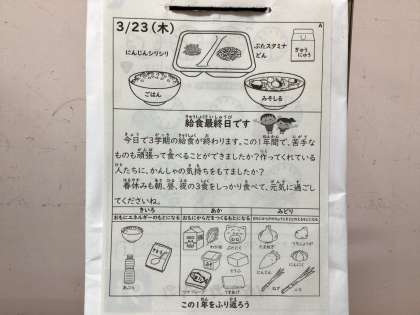 3/23(木)
A
にんじんシリシリ
ぶたスタミナ
どん
ぎゅう
にゅう
ごはん
みそしる
給食最終日です
今日で3学期の給食が終わります。この1年間で、苦手な
ものも頑張って食べることができましたか?作ってくれている
人たちに、かんしゃの気持ちをもてましたか?
春休みも朝、昼、夜の3食をしっかり食べて、元気に過ごし
てくださいね。
きいろ
あか
みどり
おもにエネルギーのもとになる
おもにからだをつくるもとになる
あぶら
わかめ
ぶたにく
とうふ
たまねぎ
にんじん
にんにく
ねぎ
この1年をふり返ろう